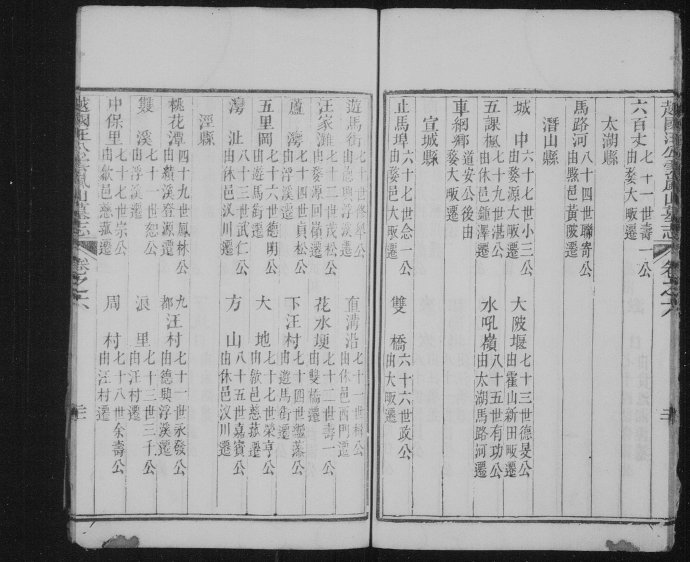 六百丈 七十一世壽一公 由婺大畈遷
太湖縣
馬路河 八十四世聯寄公 由黟邑黃陂遷
潛山縣
城中 六十七世小三公 由婺源大畈遷 大陂堰 七十三世德旻公 由霍山新田畈遷
五課楓 七十九世湛公 由休邑鍾澤遷 水吼嶺 八十五世有功公 由太湖馬路河遷
車網鄉 道安公後由 婺大畈遷
宣城縣
止馬埠 六十七世念一公 由婺邑大畈遷 雙橋 六十六世政公 由大畈遷
遊馬街 由德興浮溪遷 直溝沿 七十一世 公 由休邑西門遷
汪家灘 七十三世茂松公 由婺源回嶺遷 花水埂 七十二世壽一公 由雙橋遷
蘆灣 七十四世貞松公 由浮溪遷 下汪村 七十四世 公 由遊馬街遷
五里岡 七十六世德明公 由遊馬街遷 大地 七十七世榮亨公 由歙邑慈菰遷
灣沚 八十三世武仁公 由休邑汊川遷 方山 八十五世嘉賓公 由休邑汊川遷
涇縣
桃花潭 四十九世鳳林公 由績溪登源遷 九都汪村 七十一世永發公 由德興浮溪遷
雙溪 七十一世恕公 由浮溪遷 浪里 七十三世三千公 由汪村遷
中保里 七十七世崇公 由歙邑慈菰遷 周村 七十八世余壽公 由汪村遷
卷之六